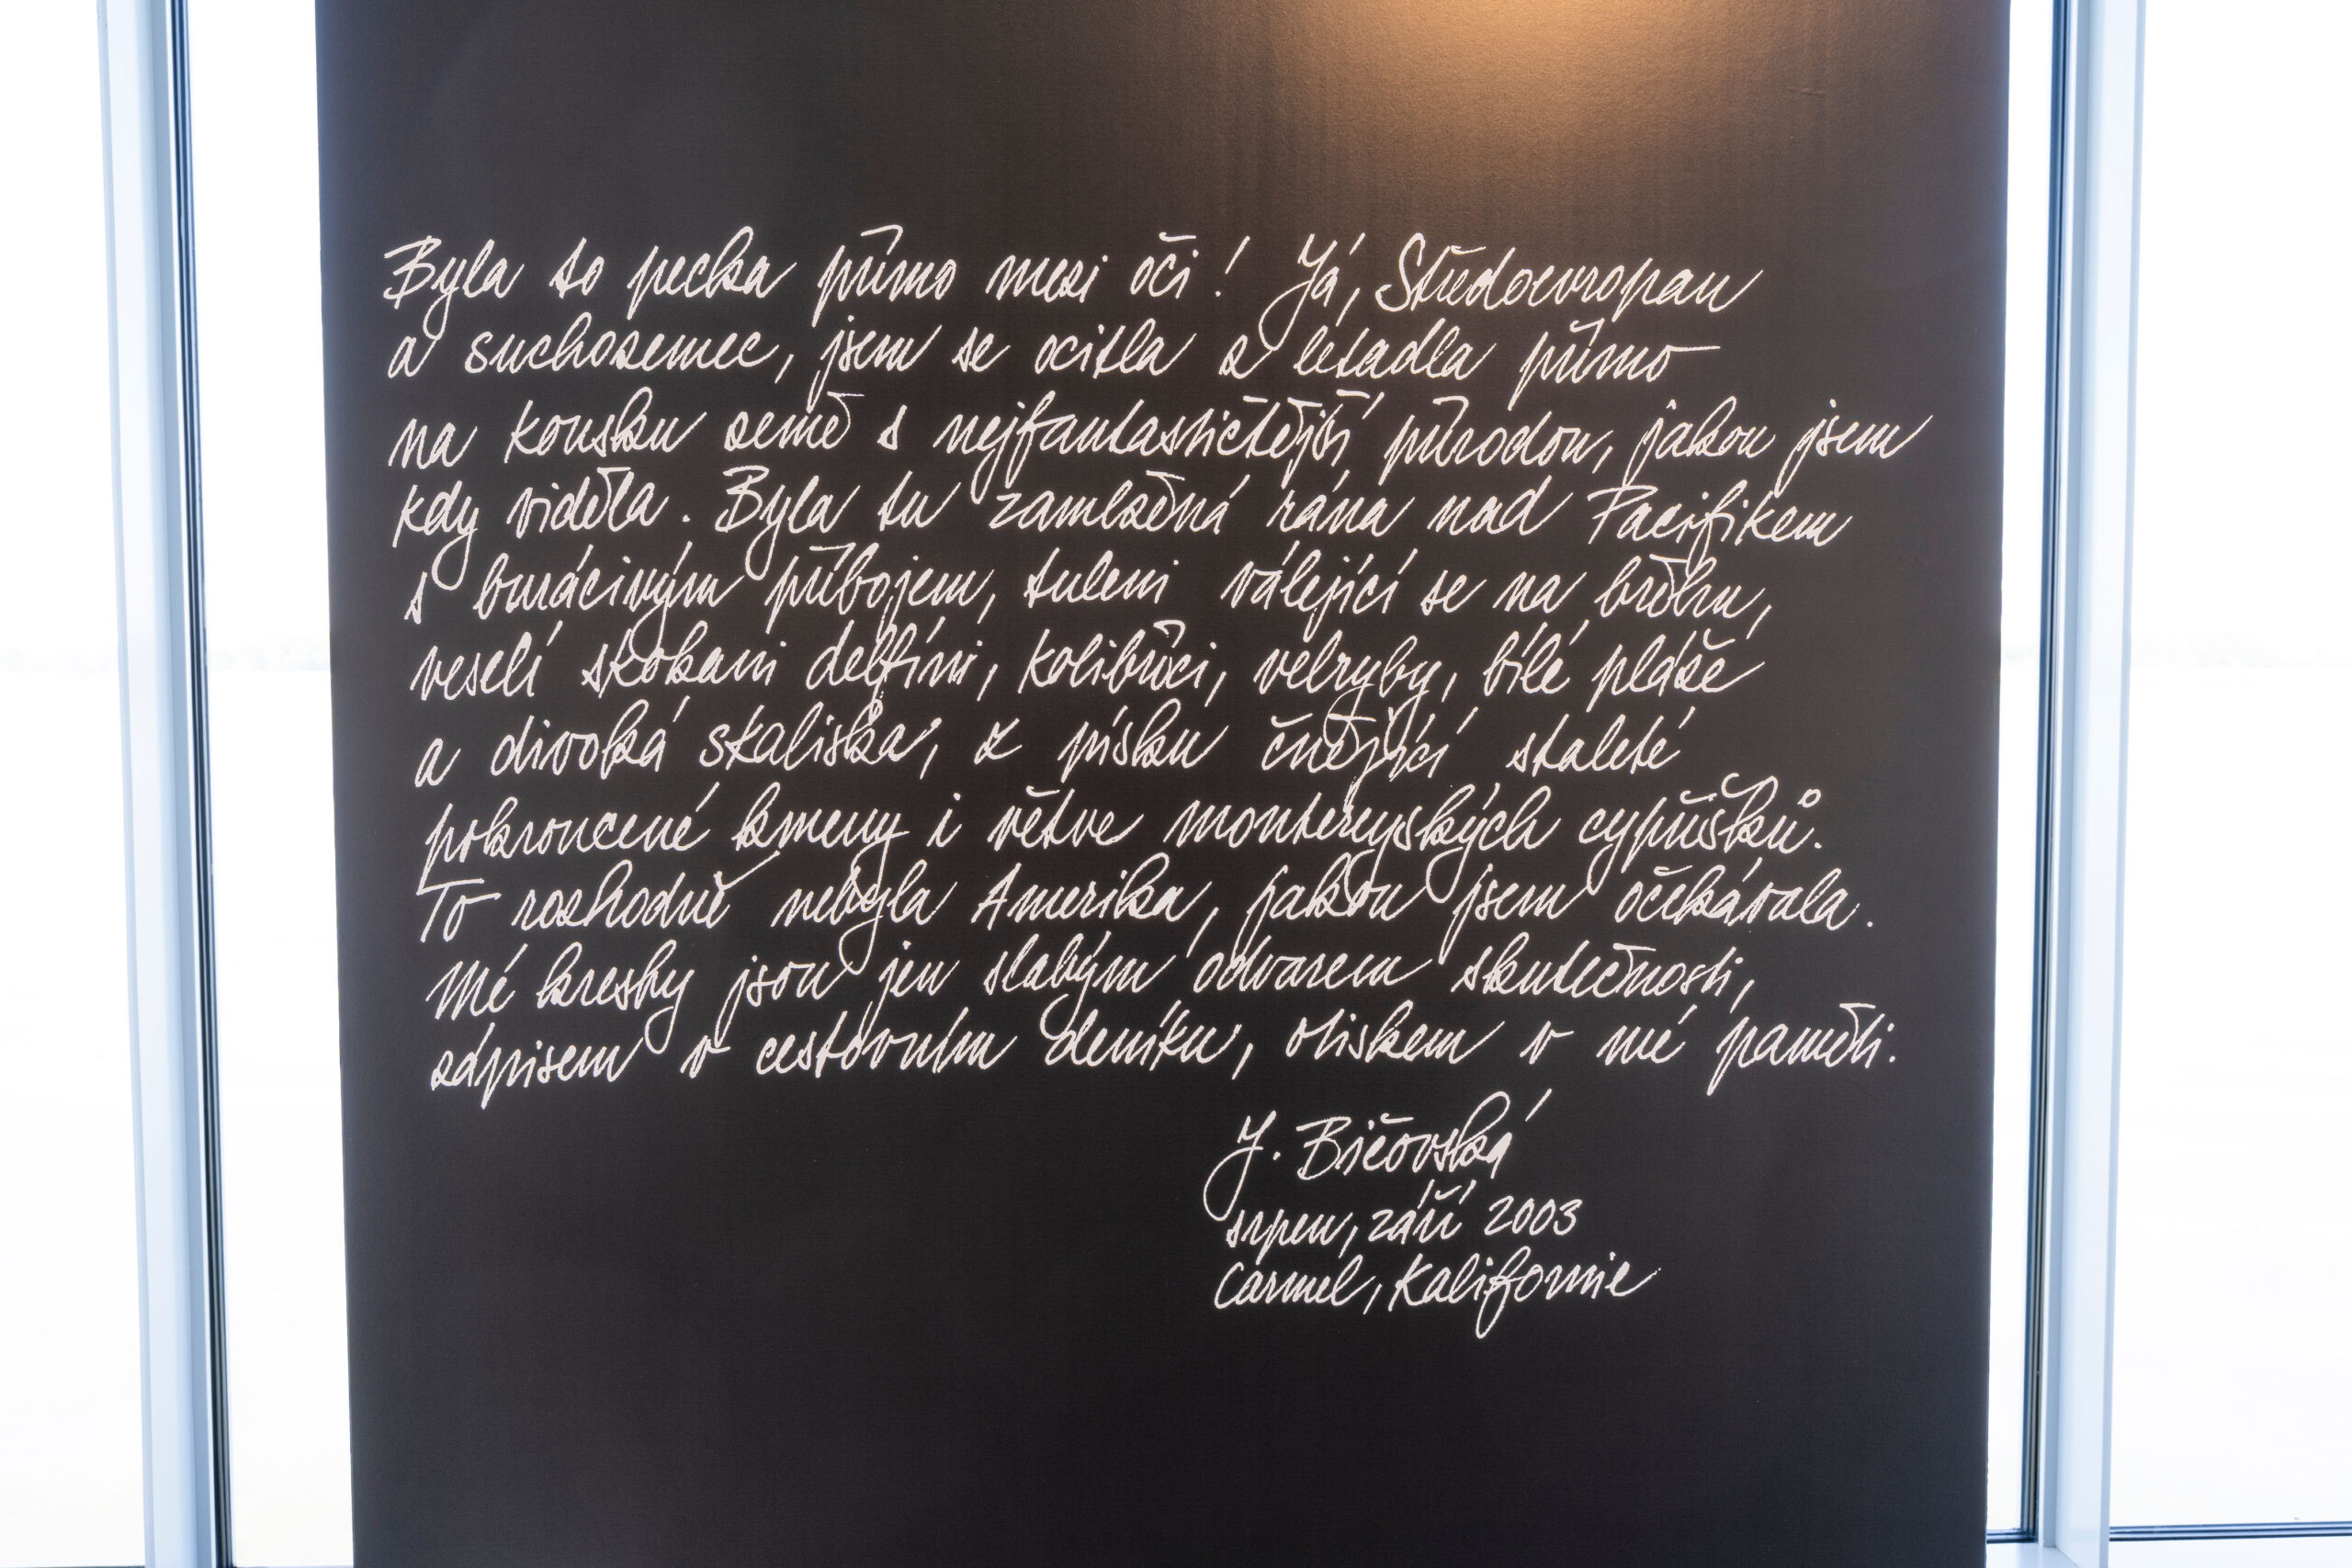 Byla to pecka přímo mezi oči! Já, Středoevropan
a suchozemec, jsem se ocitla z letadla přímo
na kousku země s nejfantastičtější přírodou, jakou jsem
kdy viděla. Byla tu zamlžená rána nad Pacifikem
s burácivým příbojem, tuleni válející se na břehu,
veselí skokani delfíni, kolibříci, velryby, bílé pláže
a divoká skaliska, z písku čnějící staleté
pokroucené kmeny i větve montereyských cypřišků.
To rozhodně nebyla Amerika, jakou jsem očekávala.
Mé kresby jsou jen slabým odvarem skutečnosti,
zápisem v cestovním deníku, otiskem v mé paměti.
J. Bičovská
srpen, září 2003
Carmel, Kalifornie